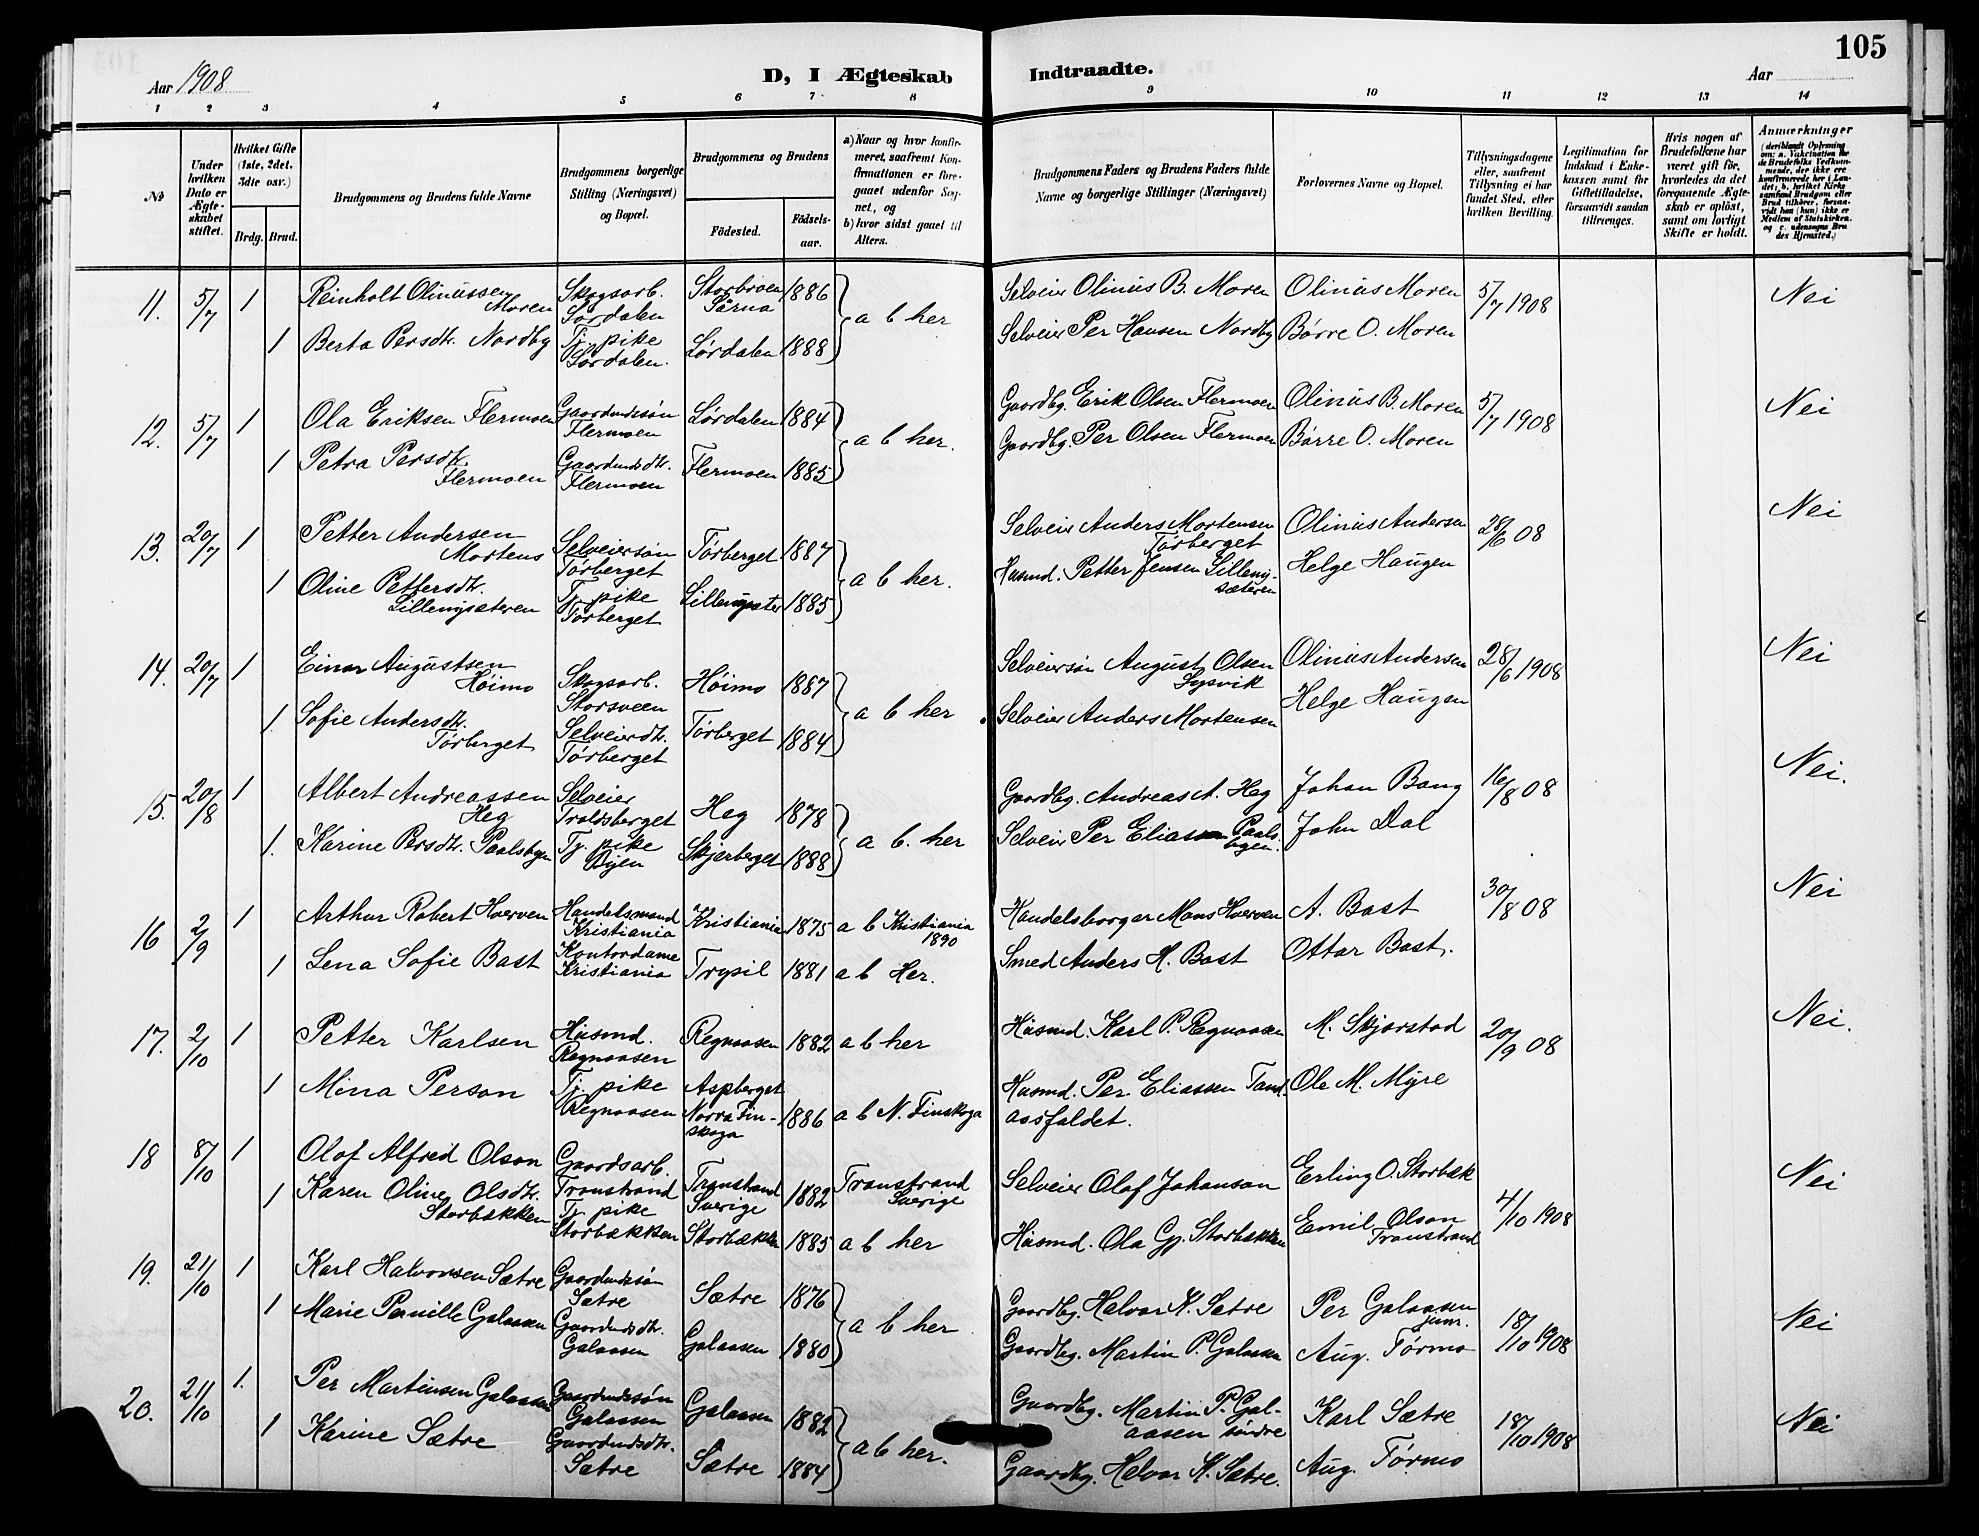 105
Aar 1908
D, I Ægteskab Indtraadte.
Aar
1 2 3 4 5 6 7 8 9 10 11 12 13 14
No
Under hvilken Dato er Ægteskabet stiftet.
Hvilket Gifte (1ste, 2det, 3die osv.)
Brdg. Brud.
Brudgommens og Brudens fulde Navne
Brudgommens borgerlige Stilling (Næringsvei) og Bopæl.
Brudgommens og Brudens
Födested.
Födselsaar.
a) Naar og hvor konfirmeret, saafremt Konfirmationen er foregaaet udenfor Sognet, og
b) hvor sidst gaaet til Alters.
Brudgommens Faders og Brudens Faders fulde Navne og borgerlige Stillinger (Næringsvei)
Forlovernes Navne og Bopæl.
Tillysningsdagene eller, saafremt Tillysning ei har fundet Sted, efter hvilken Bevilling.
Legitimation for Indskud i Enkekassen samt for Giftetilladelse, forsaavidt saadan tiltrænges.
Hvis nogen af Brudefolkene har været gift för, hvorledes da det foregaaende Ægteskab er oplöst, samt om lovligt Skifte er holdt.
Anmærkninger
(deriblandt Oplysning om: a. Vakcination for de Brudefolks Vedkommende, der ikke ere konfirmerede her i Landet; b. hvilket Kirkesamfund Brudgom eller Brud tilhörer, forsaavidt han (hun) ikke er Medlem af Statskirken, og c. udensogns Brudes Hjemsted.)
11. 5/7 1 Reinholt Olinussen Moren Skogsarb. Lørdalen Storbroen Särna 1886 a b her Selveier Olinus B. Moren Olinus Moren 5/7 1908 Nei
1 Berta Persdtr. Nordby Tj. pike Lørdalen. Lørdalen 1888 Selveier Per Hansen Nordby Børre O. Moren
12. 5/7 1 Ola Eriksen Flermoen Gaardmdssøn Flermoen Lørdalen 1884 a b her. Gaardbg. Erik Olsen Flermoen Olinus B. Moren 5/7 1908 Nei
1 Petra Persdtr. Flermoen Gaardmdsdtr. Flermoen Flermoen 1885 Gaardbg. Per Olsen Flermoen Børre O. Moren
13. 20/7 1 Petter Andersen Mortens Selveiersøn Tørberget Tørberget 1887 a b her. Selveier Anders Mortensen Tørberget Olinus Andersen 28/6 08 Nei
1 Oline Pettersdtr. Lillenysæteren Tj. pike Tørberget Lillenysæter 1885 Husmd. Petter Jensen Lillenysæteren Helge Haugen
14. 20/7 1 Einar Augustsen Høimo Skogsarb. Storsveen Høimo 1887 a b her Selveiersøn August Olsen Lysvik Olinus Andersen 28/6 1908 Nei
1. Sofie Andersdtr. Tørberget Selveierdtr. Tørberget Tørberget 1884 Selveier Anders Mortensen Helge Haugen
15. 20/8 1 Albert Andreassen Heg Selveier Troldsberget Heg 1878 a b. her Gaardbg. Andreas A. Heg Johan Bang 16/8 08 Nei.
1. Karine Persdtr. Paalsbyen Tj. pike Skjerberget 1888 Selveier Per Eliassen Paalsbyen. John Dal
16 2/9 1 Arthur Robert Hverven Handelsmand Kristiania Kristiania 1875 a b Kristiania 1890 Handelsborger Mons Hverven A. Bast 30/8 08 Nei
1 Lena Sofie Bast Kontordame Kristiania Trysil 1881 a b Her. Smed Anders H. Bast Ottar Bast.
17. 2/10 1 Petter Karlsen Husmd. Regnaasen Regnaasen 1882 a b her Husmd. Karl P. Regnaasen M. Skjærstad 20/9 08 Nei.
1 Mina Person Tj. pike Regnaasen Aspberget Norra Finskoga 1886 a b N. Finskoga Husmd. Per Eliassen Tandaasfaldet. Ole M. Myre
18 8/10 1 Olof Alfred Olson Gaardsarb. Transtrand Transtrand Sverige 1882 Transtrand Sverige Selveier Olof Johanson Erling O. Storbæk 4/10 1908 Nei
1 Karen Oline Olsdtr. Storbækken Tj. pike Storbækken Storbækken 1885 a b her Husmd. Ola Gj. Storbækken Emil Olson Transtrand
19. 21/10 1 Karl Halvorsen Sætre Gaardmdssøn Sætre Sætre 1876 a b her Gaardbg. Halvor K. Sætre Per Galaasen junr. 18/10 1908 Nei
1 Marie Pernille Galaasen Gaardmdsdtr. Galaasen Galaasen 1880 Gaardbg. Martin P. Galaasen Aug. Tørmo
20. 21/10 1. Per Martinsen Galaasen Gaardmdssøn Galaasen Galaasen 1882 a b her. Gaardbg. Martin P. Galaasen søndre Karl Sætre 18/10 1908 Nei
1 Karine Sætre Gaardmdsdtr. Sætre Sætre 1884 Gaardbg. Halvor K. Sætre. Aug. Tørmo